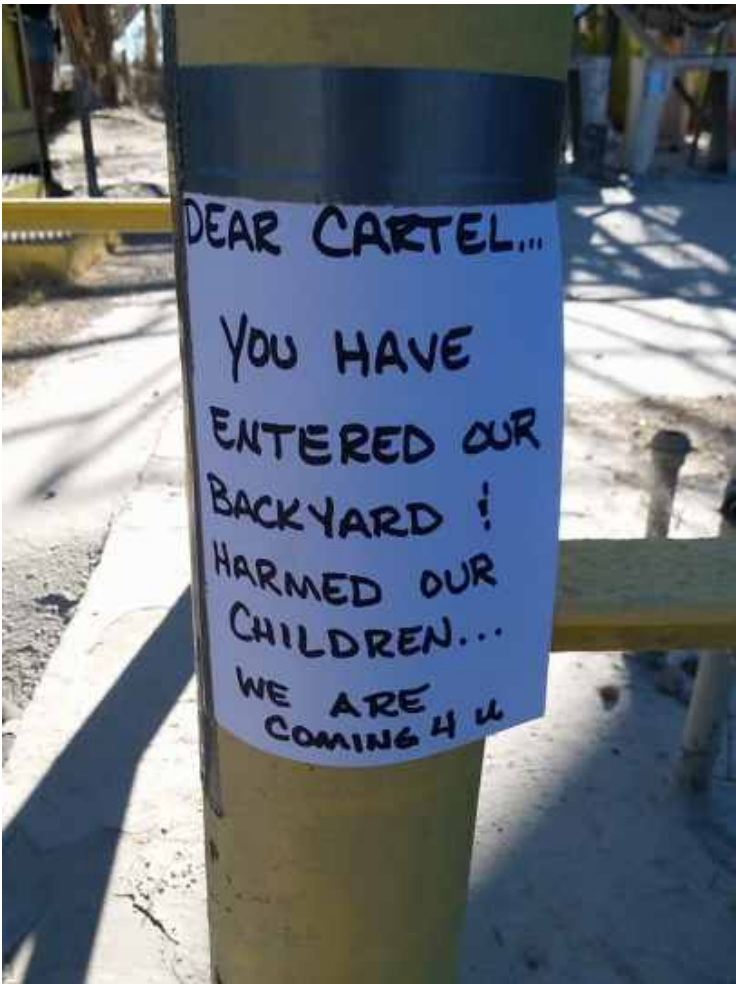 DEAR CARTEL...
YOU HAVE
ENTERED OUR
BACKYARD &
HARMED OUR
CHILDREN...
WE ARE
COMING 4 U